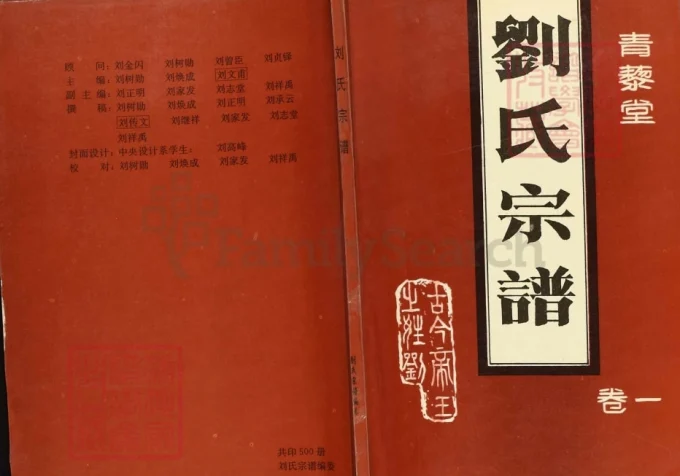 青黎堂
劉氏宗譜
卷一
古今帝王
之姓劉
刘氏宗谱
顾 问：刘金闪 刘树勋 刘曾臣
主 编：刘树勋 刘焕成 刘文甫
副主编：刘正明 刘家发 刘志堂 刘祥禹
撰 稿：刘树勋 刘焕成 刘正明 刘承云
刘传文 刘继祥 刘家发 刘志堂
刘祥禹
封面设计：中央设计系学生：刘高峰
校 对：刘树勋 刘焕成 刘家发 刘祥禹
共印500册
刘氏宗谱编委
FamilySearch